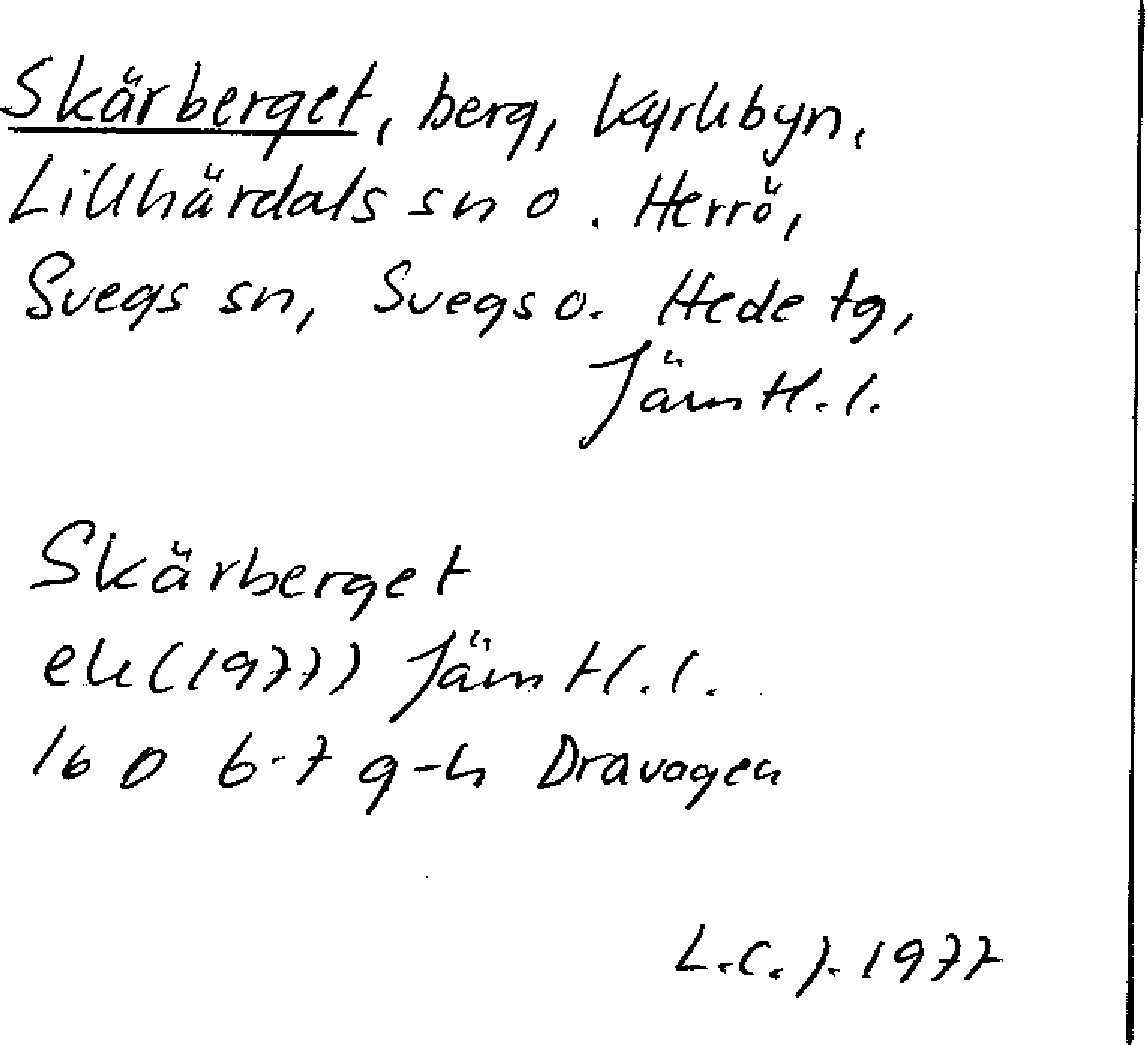 Skärberget, berg, Kyrkbyn,
Lillhärdals sn o. Herrö,
Svegs sn, Svegs o. Hede tg,
Jämtl. l.
Skärberget
ek (1977) Jämtl. l.
16 D 6-7 g-h Dravagen
L.C.J. 1977